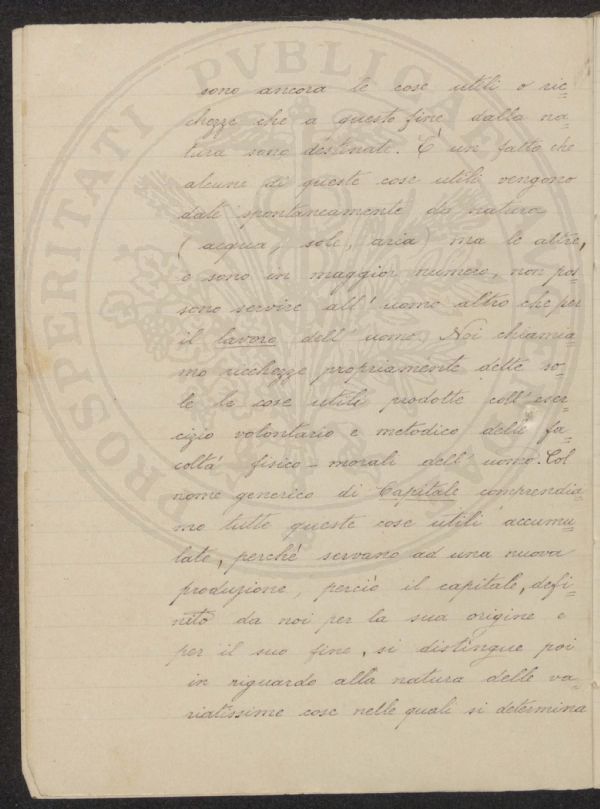 sono ancora le cose utili o ric=
chezze che a questo fine dalla na=
tura sono destinate. È un fatto che
alcune di queste cose utili vengono
date spontaneamente da natura
(acqua, sole, aria) ma le altre,
e sono in maggior numero, non pos=
sono servire all'uomo altro che per
il lavoro dell'uomo. Noi chiamia=
mo ricchezze propriamente dette so=
le le cose utili prodotte coll'eser=
cizio volontario e metodico delle fa=
coltà fisico-morali dell'uomo. Col
nome generico di Capitale comprendia=
mo tutte queste cose utili accumu=
late, perché servano ad una nuova
produzione, perciò il capitale, defi=
nito da noi per la sua origine e
per il suo fine, si distingue poi
in riguardo alla natura delle va=
riatissime cose nelle quali si determina
PROSPERITATI PVBLICAE